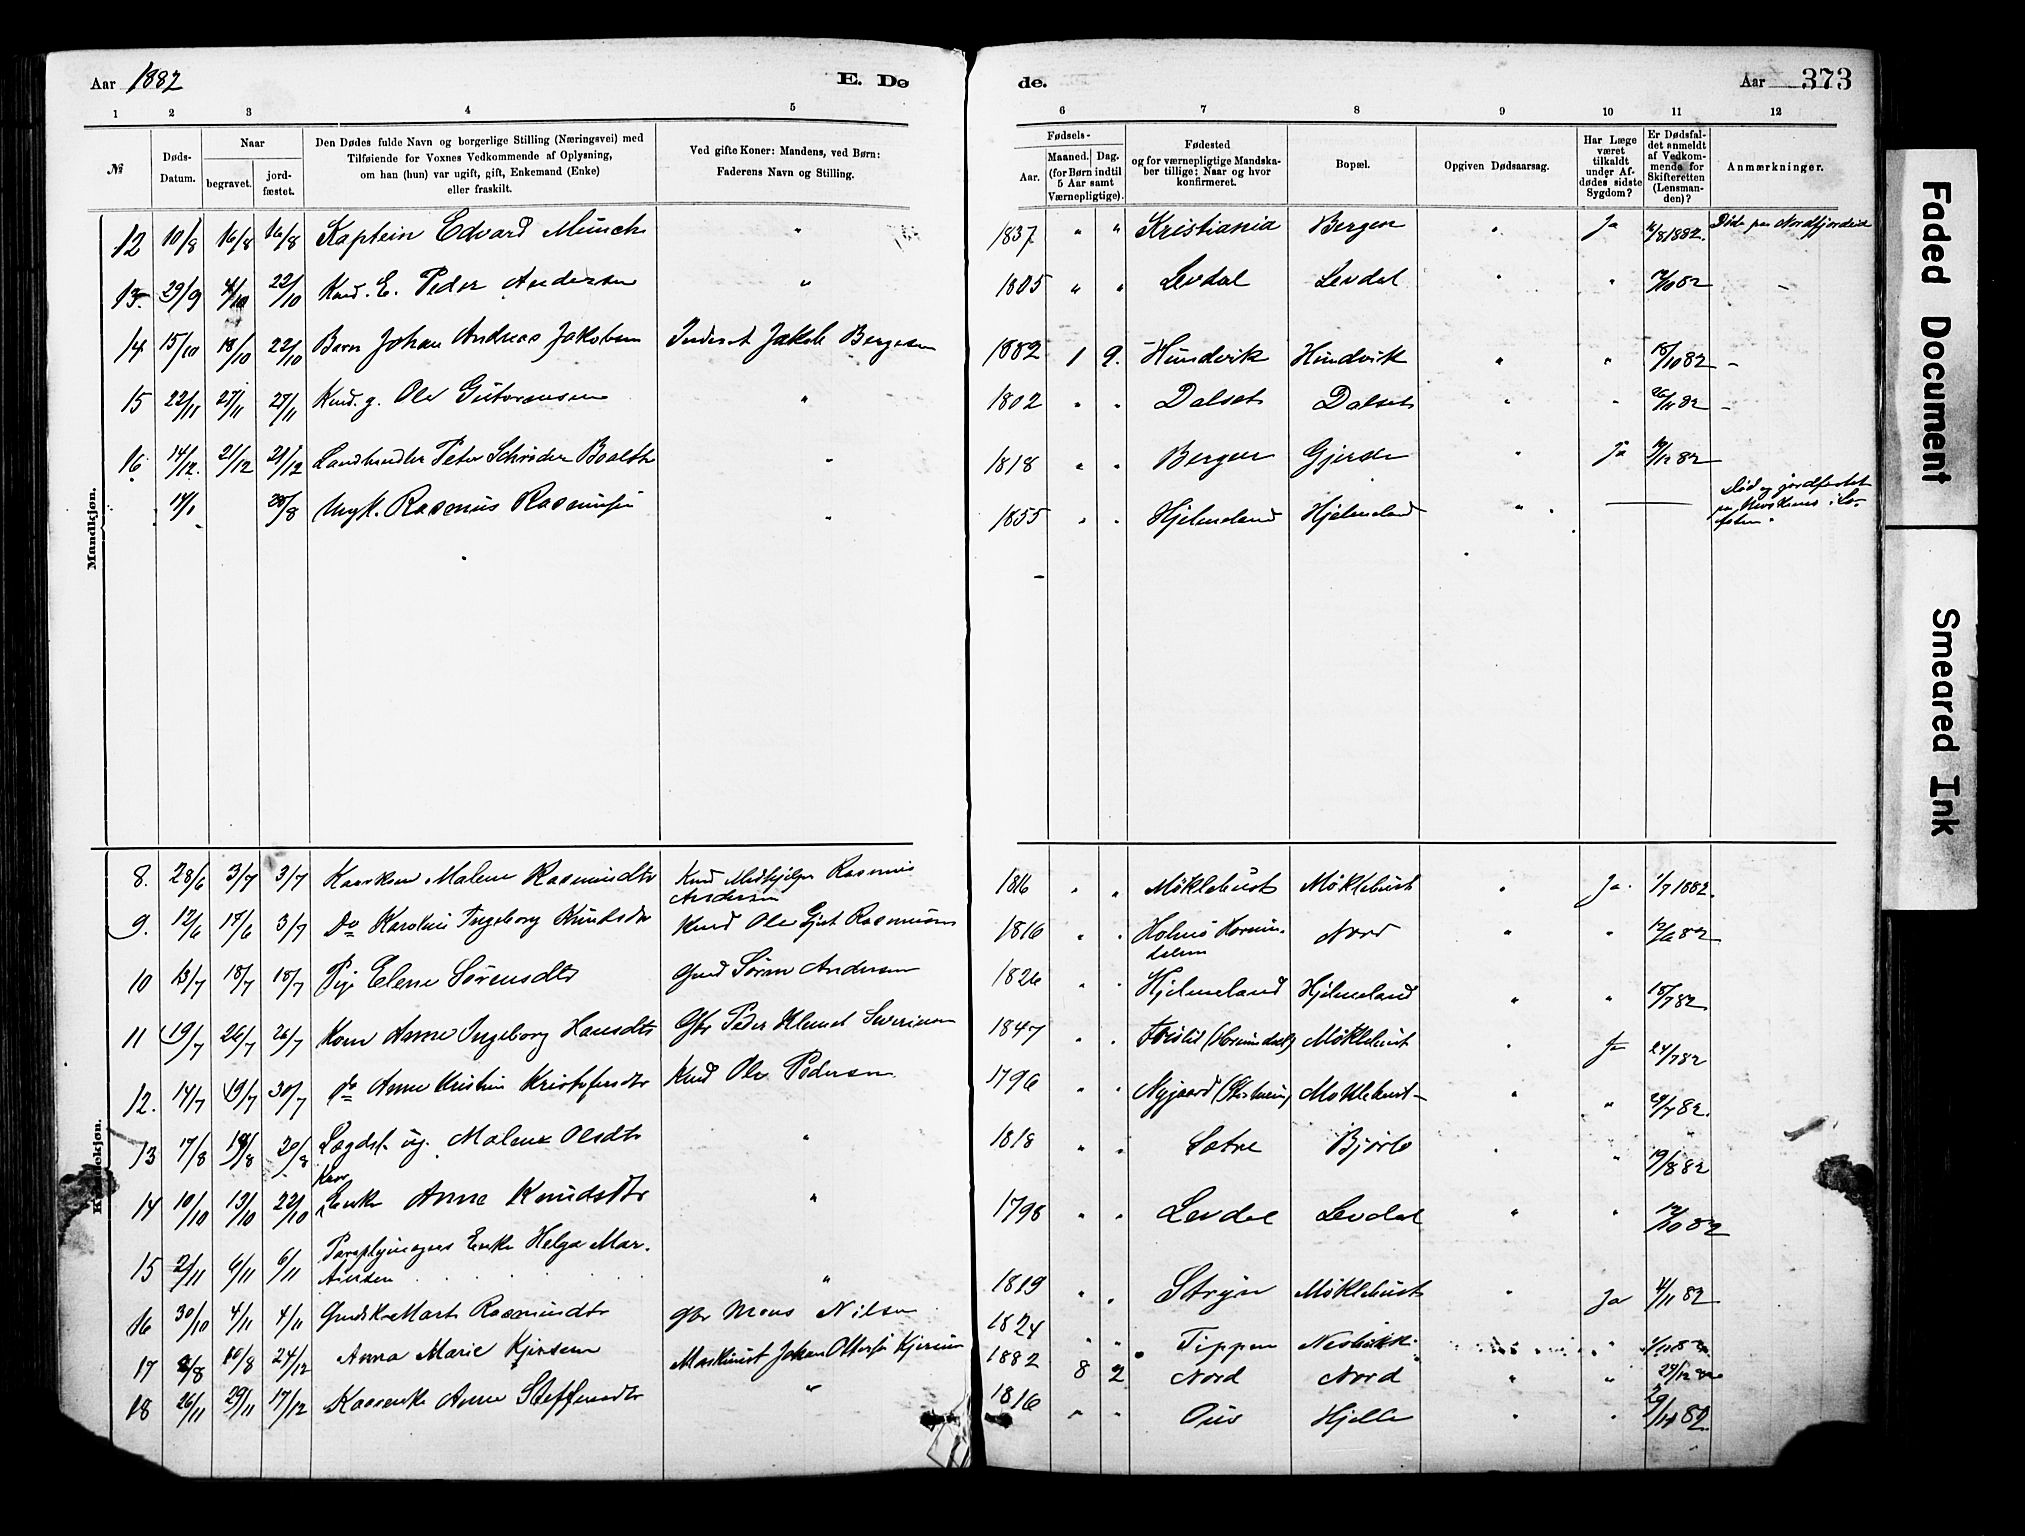 Aar 1882 E. Dø de. Aar 373
1 2 3 4 5 6 7 8 9 10 11 12
№ Døds-Datum. Naar begravet. jordfæstet. Den Dødes fulde Navn og borgerlige Stilling (Næringsvei) med Tilføiende for Voxnes Vedkommende af Oplysning, om han (hun) var ugift, gift, Enkemand (Enke) eller fraskilt. Ved gifte Koner: Mandens, ved Børn: Faderens Navn og Stilling. Fødsels- Aar. Maaned. Dag. (for Børn indtil 5 Aar samt Værnepligtige). Fødested og for værnepligtige Mandskaber tillige: Naar og hvor konfirmeret. Bopæl. Opgiven Dødsaarsag. Har Læge været tilkaldt under Afdødes sidste Sygdom? Er Dødsfaldet anmeldt af Vedkommende for Skifteretten (Lensmanden)? Anmærkninger.
Mandkjøn.
12 10/8 16/8 16/8 Kaptein Edvard Münch " 1837 " " Kristiania Bergen " Ja 11/8 1882. Døde paa Nordfjordeid
13. 29/9 4/10 22/10 Kaard. E. Peder Andersen " 1805 " " Levdal Levdal " " 7/10 82 -
14 15/10 18/10 22/10 Barn Johan Andreas Jakobsen Inderst Jakob Bergesen 1882 1 9. Hundvik Hundvik " " 18/10 82 -
15 22/11 27/11 27/11 Kmd. g. Ole Guttormsen " 1802 " " Dalset Dalset " " 26/11 82 -
16 14/12. 21/12 21/12 Landhandler Peter Schrøder Boalth " 1818 " " Bergen Gjerde " Ja 19/12 82
14/1 28/8 Ungk. Rasmus Rasmussen " 1855 " " Hjelmeland Hjelmeland " Død og jordfæstet
Kvindekjøn.
8. 28/6 3/7 3/7 Malene Rasmusdtr Kmd Medhjelper Rasmus Andersen 1816 " " Møklebust Møklebust " Ja. 1/7 1882.
9. 12/6 17/6 3/7 Do Karoline Ingeborg Knudsdtr Kmd Ole Gjert Rasmussen 1816 " " Holmø Hornindalen Nord " " 12/6 82
10 13/7 18/7 18/7 Pige Elene Sørensdtr Gmd Søren Andersen 1826 " " Hjelmeland Hjelmeland " " 18/7 82
11 19/7 26/7 26/7 Kone Anne Ingeborg Hansdtr Gbr Peder Klemet Severinsen 1847 " " (Hornindal) Møklebust " Ja 24/7 82
12. 14/7 19/7 30/7 do Anne Kristine Kristofersdtr Kmd Ole Pedersen 1796 " " Nygaard Møklebust " " 29/7 82.
13 17/8 19/8 20/8 Lægdsl. ug. Malene Olsdtr " 1818 " " Sætre Bjørlo " " 19/8 82
14 10/10 13/10 22/10 Kaar Enke Anne Knudsdtr " 1798 " " Levdal Levdal " " 12/10 82
15 2/11 6/11 6/11 Paraplymagers Enke Helga Martinsen " 1819 " " Stryn Møklebust " Ja 4/11 82
16 30/10 4/11 4/11 Marte Rasmusdtr Gbr Mons Nilsen 1824 " " Tippen " "
17 8/8 10/8 24/12 Anna Marie Kjersem Maskinist Johan Kjersem 1882 8 2 Nord Nord " " 29/12
18 26/11 29/11 17/12 Kaarenke Anne Steffensdtr " 1816 " " Hjelle " " 82
Faded Document
Smeared Ink